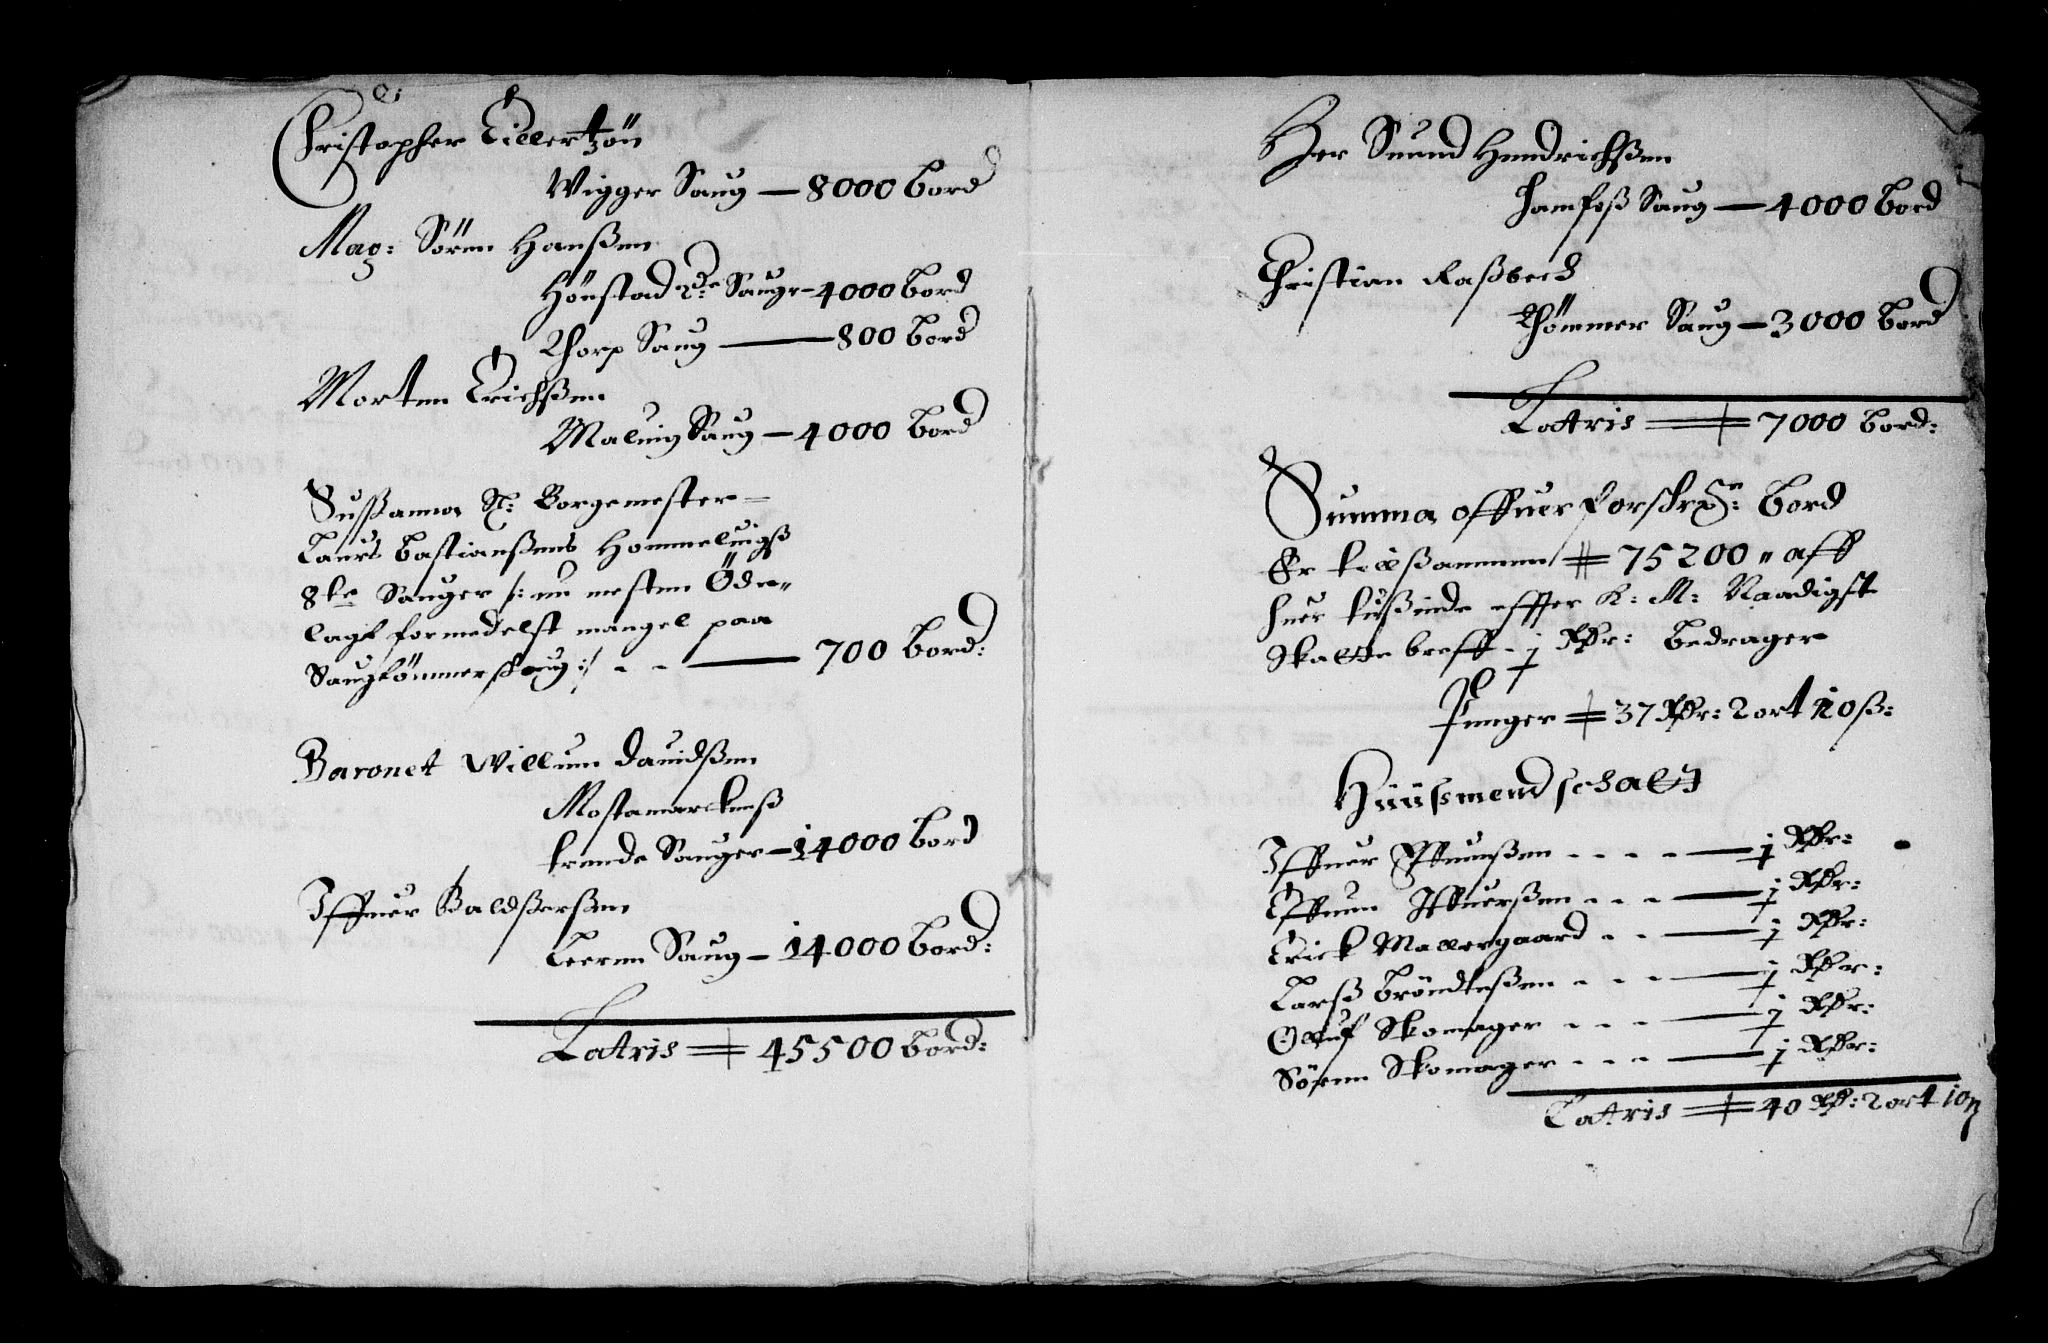 Christopher Eillertzön
Wigger Saug — 8000 bord
Mag: Sören Hanßen
Hönstad 2de Sauge – 4000 bord
Thorp Saug — 800 bord
Morten Erichßen
Maluig Saug — 4000 bord
Sußanna Sl: Borgemester
Laurs Bastianßens Hommeluigß
8te Sauger /: nu mesten Öde,,
lagt formedelst mangel paa
Saugtömmerskoug :/ - - — 700 bord:
Baronet Willum Dauidßen
Mostamarckenß
trende Sauger — 14000 bord
Iffuer Baldßerßen
Leeren Saug — 14000 bord:
Latris = 45500 bord:
Her Suend Hendrichßen
Hamfoß Saug — 4000 bord
Christian Raßbech
Thömmer Saug — 3000 bord
Latris = 7000 bord:
Summa offuer forskrne: bord
Er tilsammen = 75200 ,, aff
huer tußinde effter K: M: Naadigst
Skatte breff - j Rdr: bedrager
Penger = 37 Rdr: 2 ort 10 ß:
Huußmend schatt
Iffuer Effuenßen - - - - — j Rdr:
Effuen Iffuerßen - - - — j Rdr:
Erick Mallergaard - - — j Rdr:
Larß Bröndteßen - - - — j Rdr:
Olluf Skomager - - - — j Rdr:
Sören Skomager - - - — j Rdr:
Latris = 40 Rd: 2 ort 10